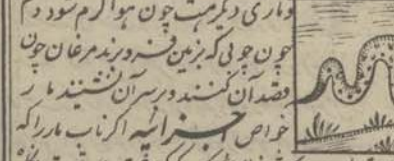 و ماری دیگرست چون هوا گرم شود دم
چون چوبی که بزمین فرو برند مرغان چون
قصد آن کنند و بر سر آن نشینند مار
خواص اجزائیه اگر ناب مار را که